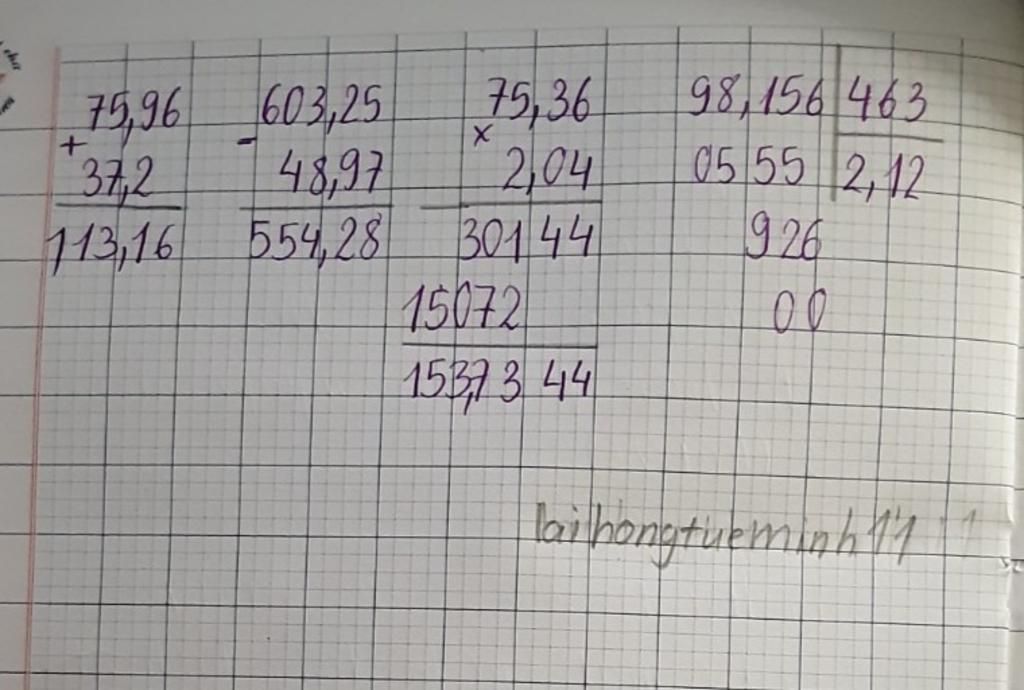 75,96
+
37,2
113,16
603,25
-
48,97
554,28
75,36
x
2,04
30144
15072
153,7344
98,156 463
0555 2,12
926
00
laihongtueminh11